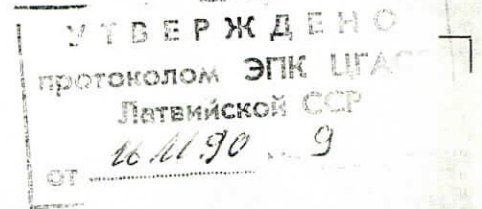 УТВЕРЖДЕНО
протоколом ЭПК ЦГА
Латвийской ССР
от 16.11.90 9